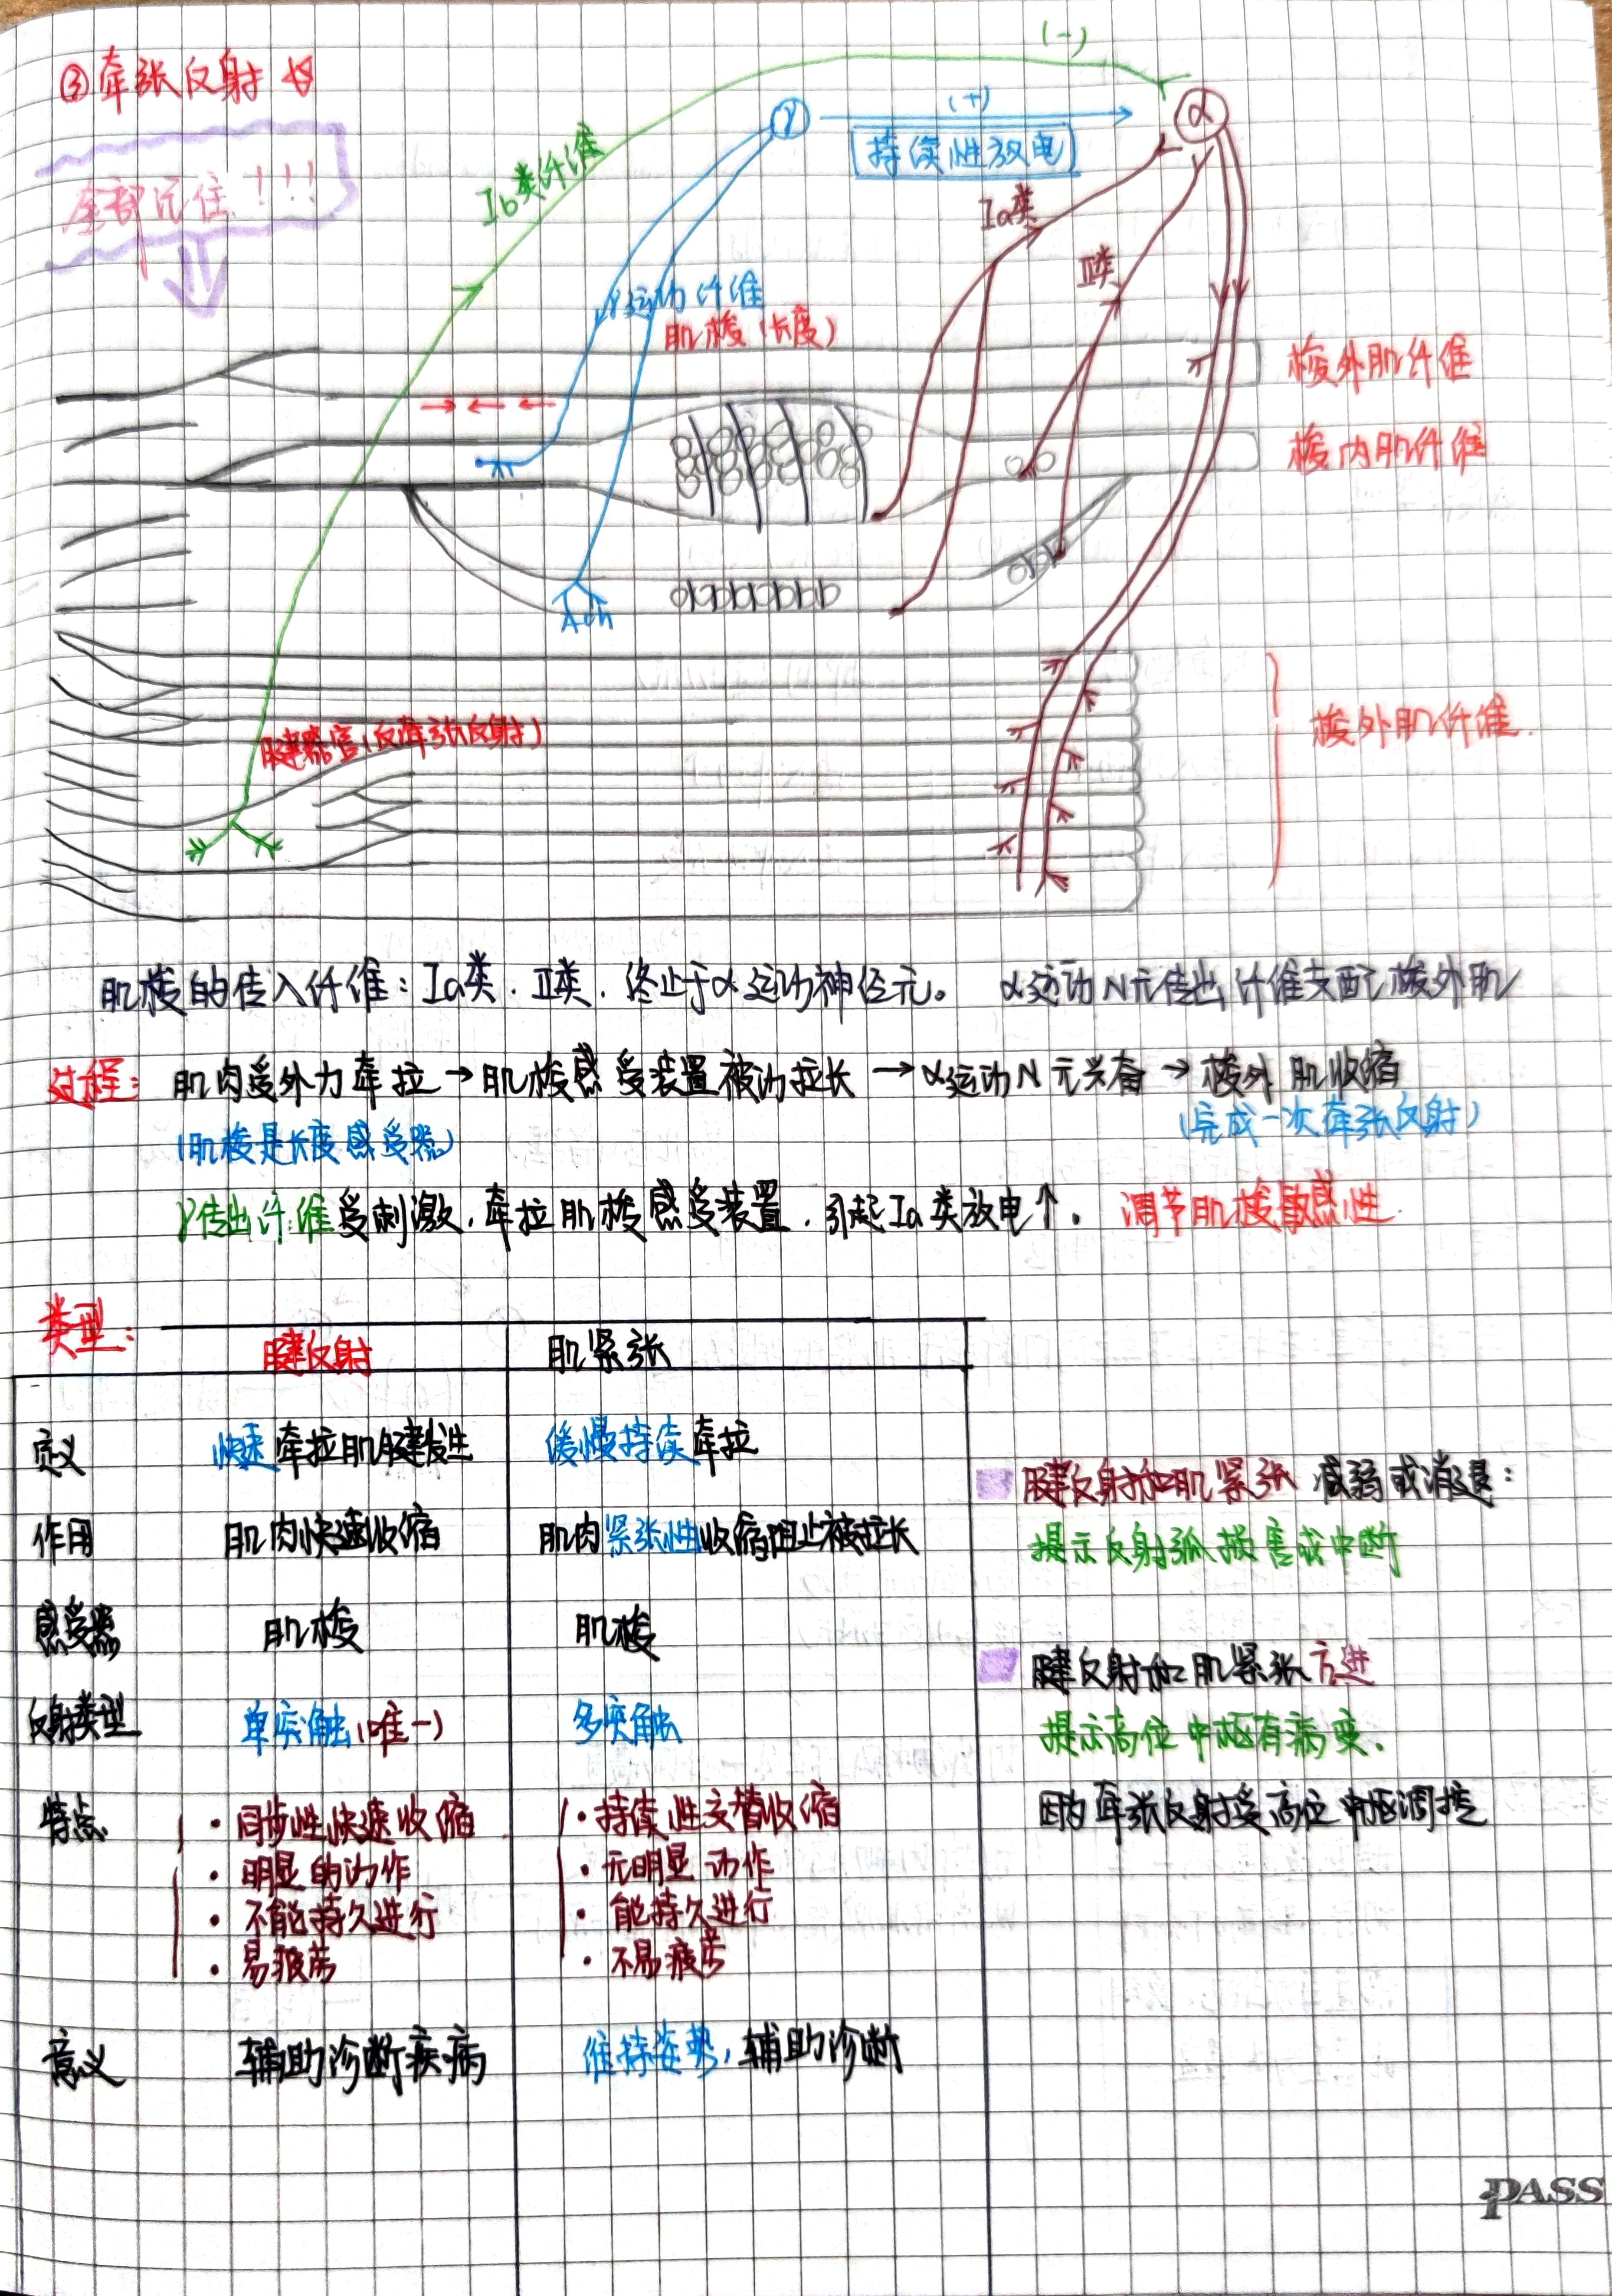 ③牵张反射 ☆
全部记住!!!
(-)
γ
(+)
α
持续性放电
Ib类纤维
Ia类
II类
γ运动纤维
肌梭(长度)
梭外肌纤维
梭内肌纤维
Ach
腱器官(反牵张反射)
梭外肌纤维.
肌梭的传入纤维:Ia类.II类.终止于α运动神经元。 α运动N元传出纤维支配梭外肌
过程: 肌肉受外力牵拉→肌梭感受装置被动拉长→α运动N元兴奋→梭外肌收缩
(肌梭是长度感受器) (完成一次牵张反射)
γ传出纤维受刺激.牵拉肌梭感受装置.引起Ia类放电↑. 调节肌梭敏感性.
类型:
腱反射 肌紧张
定义 快速牵拉肌腱发生 缓慢持续牵拉
作用 肌肉快速收缩 肌肉紧张性收缩阻止被拉长
感受器 肌梭 肌梭
反射类型 单突触(唯一) 多突触
特点 ·同步性快速收缩 ·持续性交替收缩
·明显的动作 ·无明显动作
·不能持久进行 ·能持久进行
·易疲劳 ·不易疲劳
意义 辅助诊断疾病 维持姿势,辅助诊断
腱反射和肌紧张减弱或消退:
提示反射弧损害或中断
腱反射和肌紧张亢进
提示高位中枢有病变.
因为牵张反射受高位中枢调控
PASS